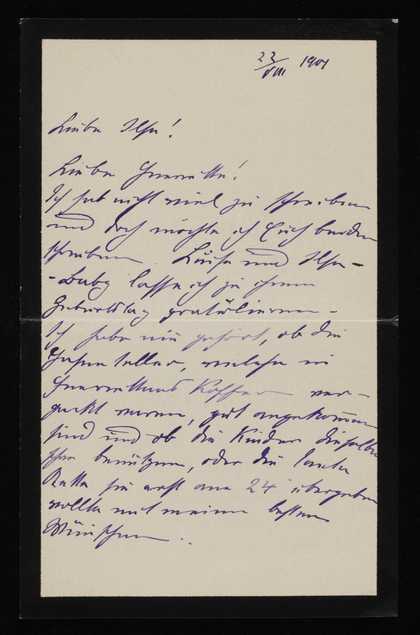 23/VIII 1901
Liebe Ilse!
Liebe Henriette!
Ich hab nicht viel zu schreiben
und doch möchte ich Euch beiden
schreiben. Luise und Ilse-
-Baby lasse ich zu ihrem
Geburtstag gratulieren.-
Ich habe nie gehört, ob die
Hasenteller, welche in
Henriettens Koffer ver-
packt waren, gut angekommen
sind und ob die Kinder dieselben
schon benützen, oder die
sie erst am 24 übergeben
wollte mit meinen besten
Wünschen..